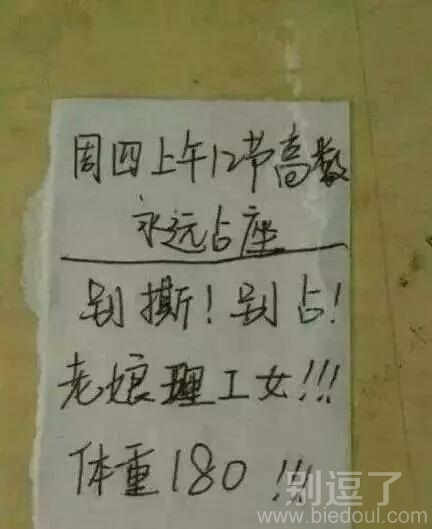 周四上午12节高数
永远占座
别撕!别占!
老娘理工女!!!
体重180!!!
别逗了
www.biedoul.com